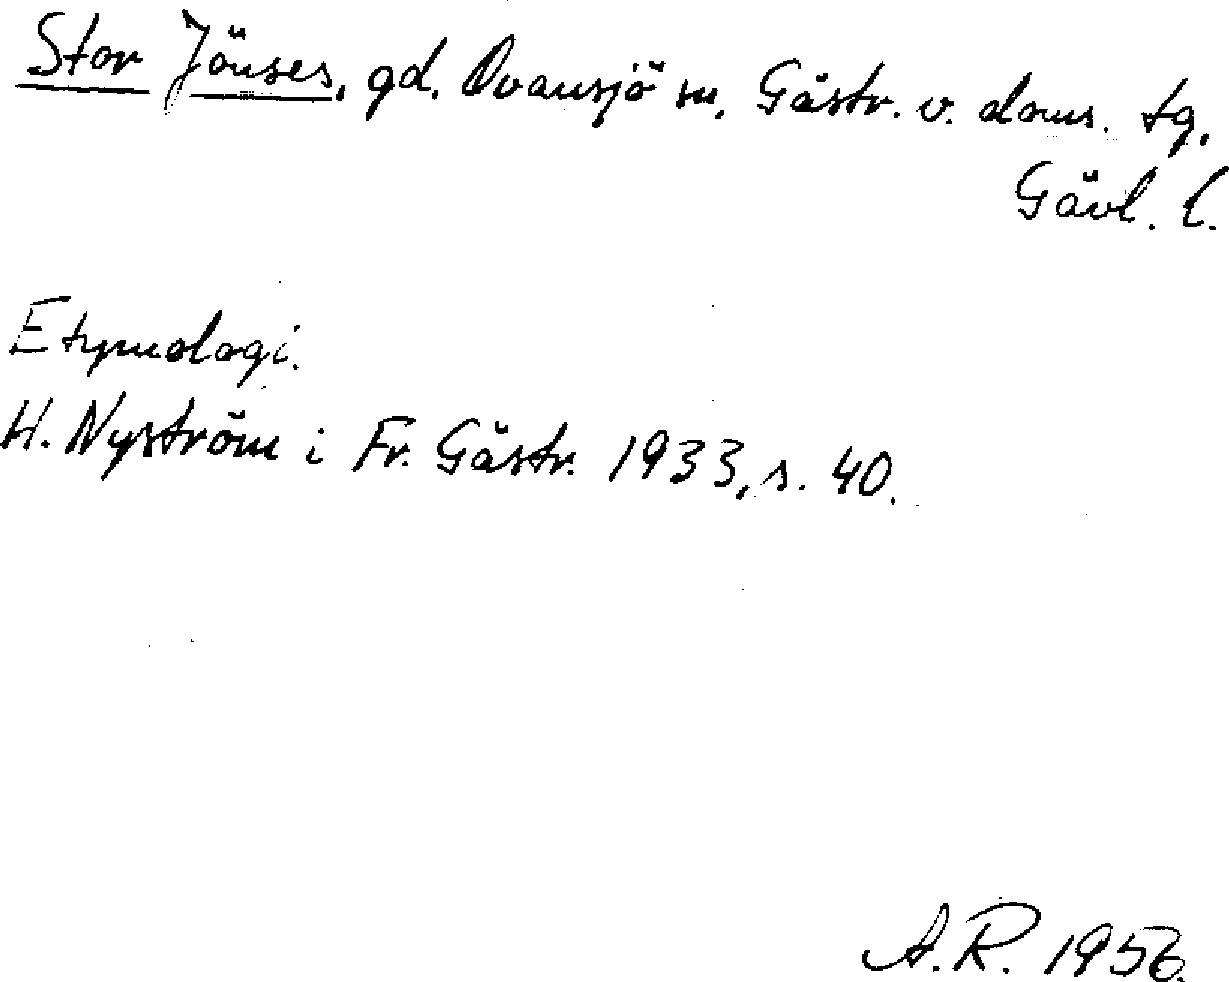 Stor Jönses, gd, Ovansjö sn, Gästr. v. doms. tg,
Gävl. l.
Etymologi.
H. Nyström i Fr. Gästr. 1933, s. 40.
A.R. 1956.